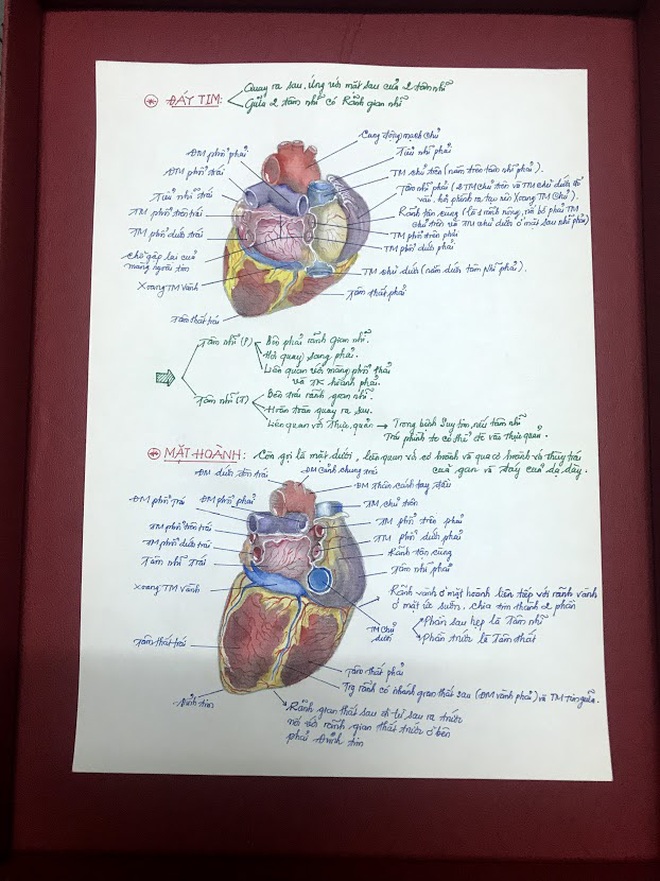 ĐÁY TIM:
Quay ra sau, ứng với mặt sau của 2 tâm nhĩ
Giữa 2 tâm nhĩ có Rãnh gian nhĩ
Cung động mạch chủ
ĐM phổi phải
Tiểu nhĩ phải
ĐM phổi trái
TM chủ trên (nằm trên tâm nhĩ phải).
Tiểu nhĩ trái
Tâm nhĩ phải (2 TM chủ trên và TM chủ dưới đổ
vào, hơi phình ra tạo nên Xoang TM Chủ).
TM phổi trên trái
Rãnh tận cùng (là 1 rãnh nông, nối bờ phải TM
chủ trên và TM chủ dưới ở mặt sau nhĩ phải)
TM phổi dưới trái
TM phổi trên phải
TM phổi dưới phải
Chỗ gấp lại của
màng ngoài tim
TM chủ dưới (nằm dưới tâm nhĩ phải).
Xoang TM Vành
Tâm thất phải
Tâm thất trái
Tâm nhĩ (P)
Bên phải rãnh gian nhĩ.
Hơi quay sang phải.
Liên quan với màng phổi phải
và TK hoành phải.
Tâm nhĩ (T)
Bên trái rãnh gian nhĩ.
Hoàn toàn quay ra sau.
Liên quan với Thực quản → Trong bệnh Suy tim, nếu tâm nhĩ
Trái phình to có thể đè vào thực quản.
MẶT HOÀNH: Còn gọi là mặt dưới, liên quan với cơ hoành và qua cơ hoành với thùy trái
của gan và đáy của dạ dày.
ĐM dưới đòn trái
ĐM Cảnh chung trái
ĐM Thân cánh tay đầu
ĐM phổi Trái
ĐM phổi phải
TM chủ trên
TM phổi trên trái
TM phổi trên phải
TM phổi dưới trái
TM phổi dưới phải
Tâm nhĩ Trái
Rãnh tận cùng
Tâm nhĩ phải
Xoang TM Vành
Rãnh vành ở mặt hoành liên tiếp với rãnh vành
ở mặt ức sườn, chia tim thành 2 phần
Phần sau hẹp là Tâm nhĩ
Phần trước là Tâm thất
TM Chủ
dưới
Tâm thất trái
Tâm thất phải
Trg rãnh có nhánh gian thất sau (ĐM vành phải) và TM Tim giữa.
Đỉnh tim
Rãnh gian thất sau đi từ sau ra trước
nối với rãnh gian thất trước ở bên
phải Đỉnh tim